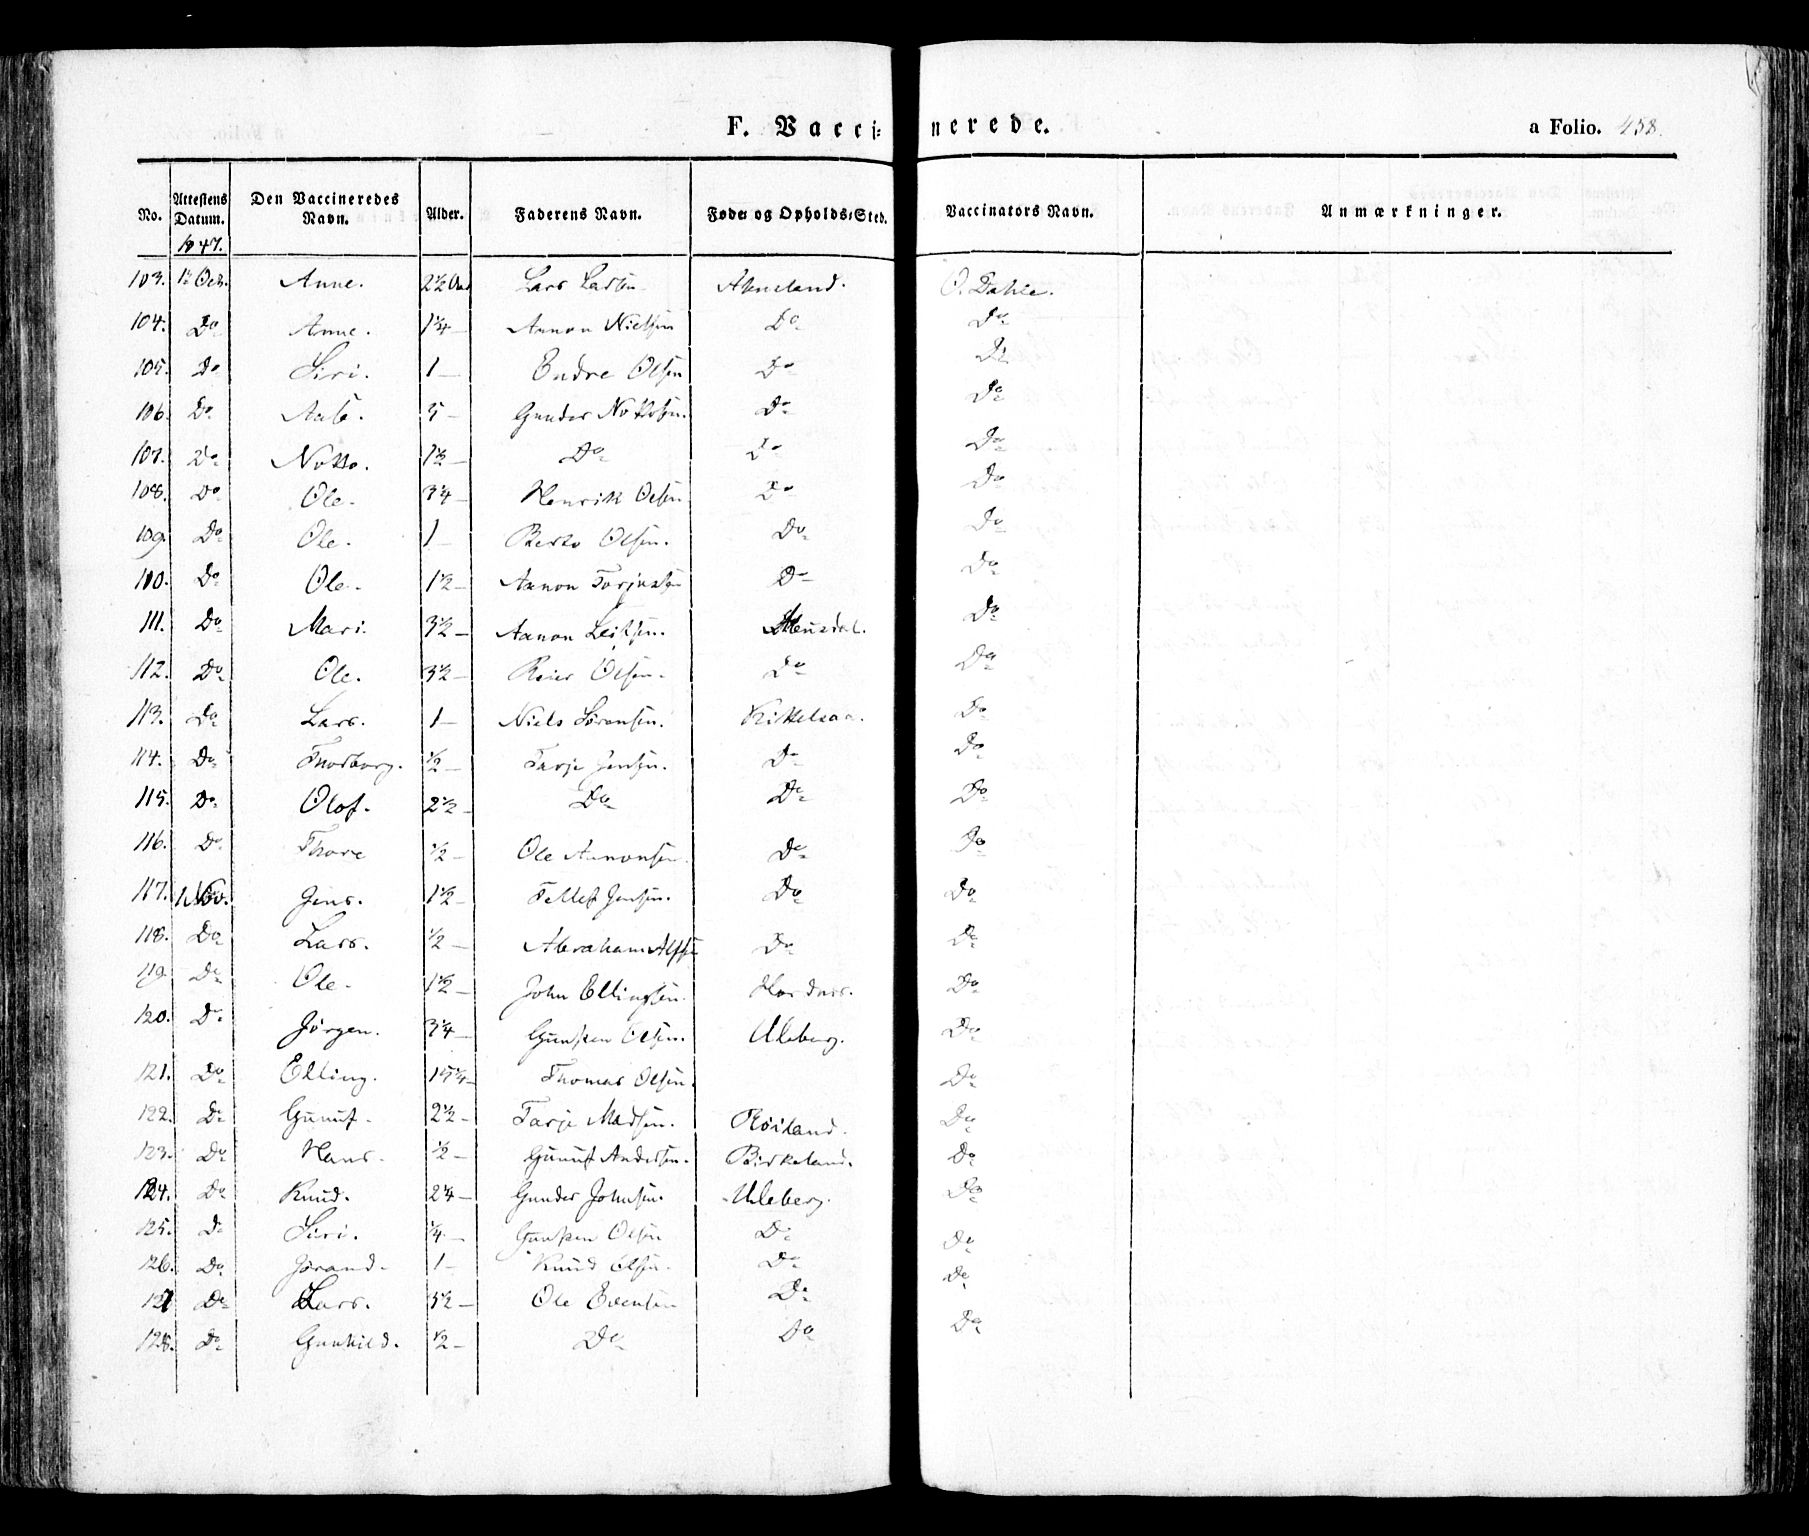 F. Vaccinerede.
a Folio. 458.
No. Attestens Datum. Den Vaccineredes Navn. Alder. Faderens Navn. Føde og Opholds-Sted. Vaccinators Navn. Anmærkninger.
1847.
103. 1 Oct. Anne. 2½ Lars Larsen O. Dahle.
104. Do Anne. 1¼ - Aanon Nielsen Do Do
105. Do Siri. 1 - Endre Olsen Do Do
106. Do 5 - Gunder Do Do
107. Do Notto. 1½ - Do Do Do
108. Do Ole. 3¼ - Henrik Olsen Do Do
109. Do Ole. 1 - Olsen. Do Do
110. Do Ole. 1½ - Aanon Do Do
111. Do Mari. 3½ - Aanon Do
112. Do Ole. 3½ - Reier Olsen. Do Do
113. Do Lars. 1 - Niels Sørensen. Kittelsaa. Do
114. Do Thorborg. ½ - Tarje Jensen. Do Do
115. Do Olof. 2½ - Do Do Do
116. Do Thore ½ - Ole Aanonsen Do Do
117. 1 Nov. Jens. 1½ - Tellef Jensen. Do Do
118. Do Lars. ½ - Abraham Do Do
119. Do Ole. 1½ - John Ellingsen. Do
120. Do Jørgen. 3¼ - Olsen. Uleberg. Do
121. Do Elling. Thomas Olsen. Do
122. Do Gunuf. 2½ - Tarje Madsen. Røiland. Do
123. Do Hans. ½ - Gunuf Andersen. Birkeland. Do
124. Do Knud. 2¼ - Gunder Johnsen. Uleberg. Do
125. Do Siri. ¼ - Olsen Do Do
126. Do Jorand. 1 - Knud Olsen. Do Do
127 Do Lars. Ole Evensen Do Do
128. Do Gunhild. ½ - Do Do